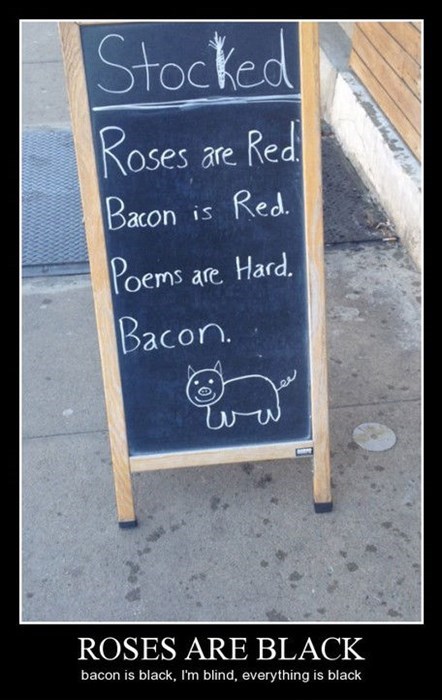 Stocked
Roses are Red.
Bacon is Red.
Poems are Hard.
Bacon.
ROSES ARE BLACK
bacon is black, I'm blind, everything is black